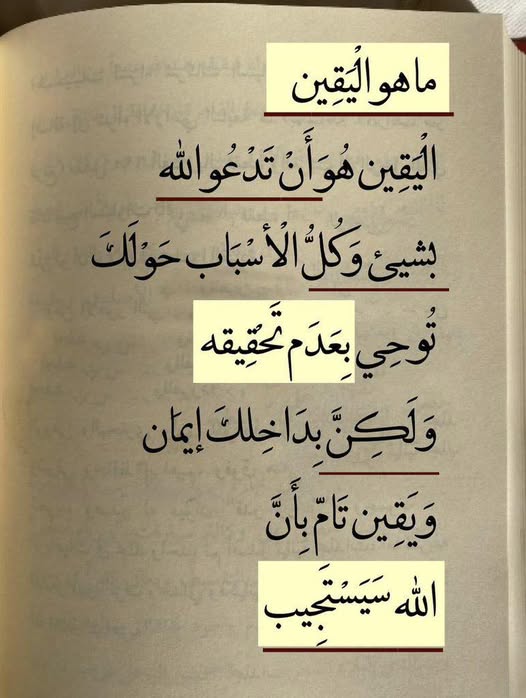 ما هو الْيَقِين
الْيَقِين هُوَ أَنْ تَدْعُو الله
بشيئ وَكُلُّ الْأَسْبَاب حَوْلَكَ
تُوحِي بِعَدَم تَحْقِيقه
وَلَكِنَّ بِدَاخِلكَ إيمَان
وَيَقِين تَامّ بِأَنَّ
الله سَيَسْتَجِيب